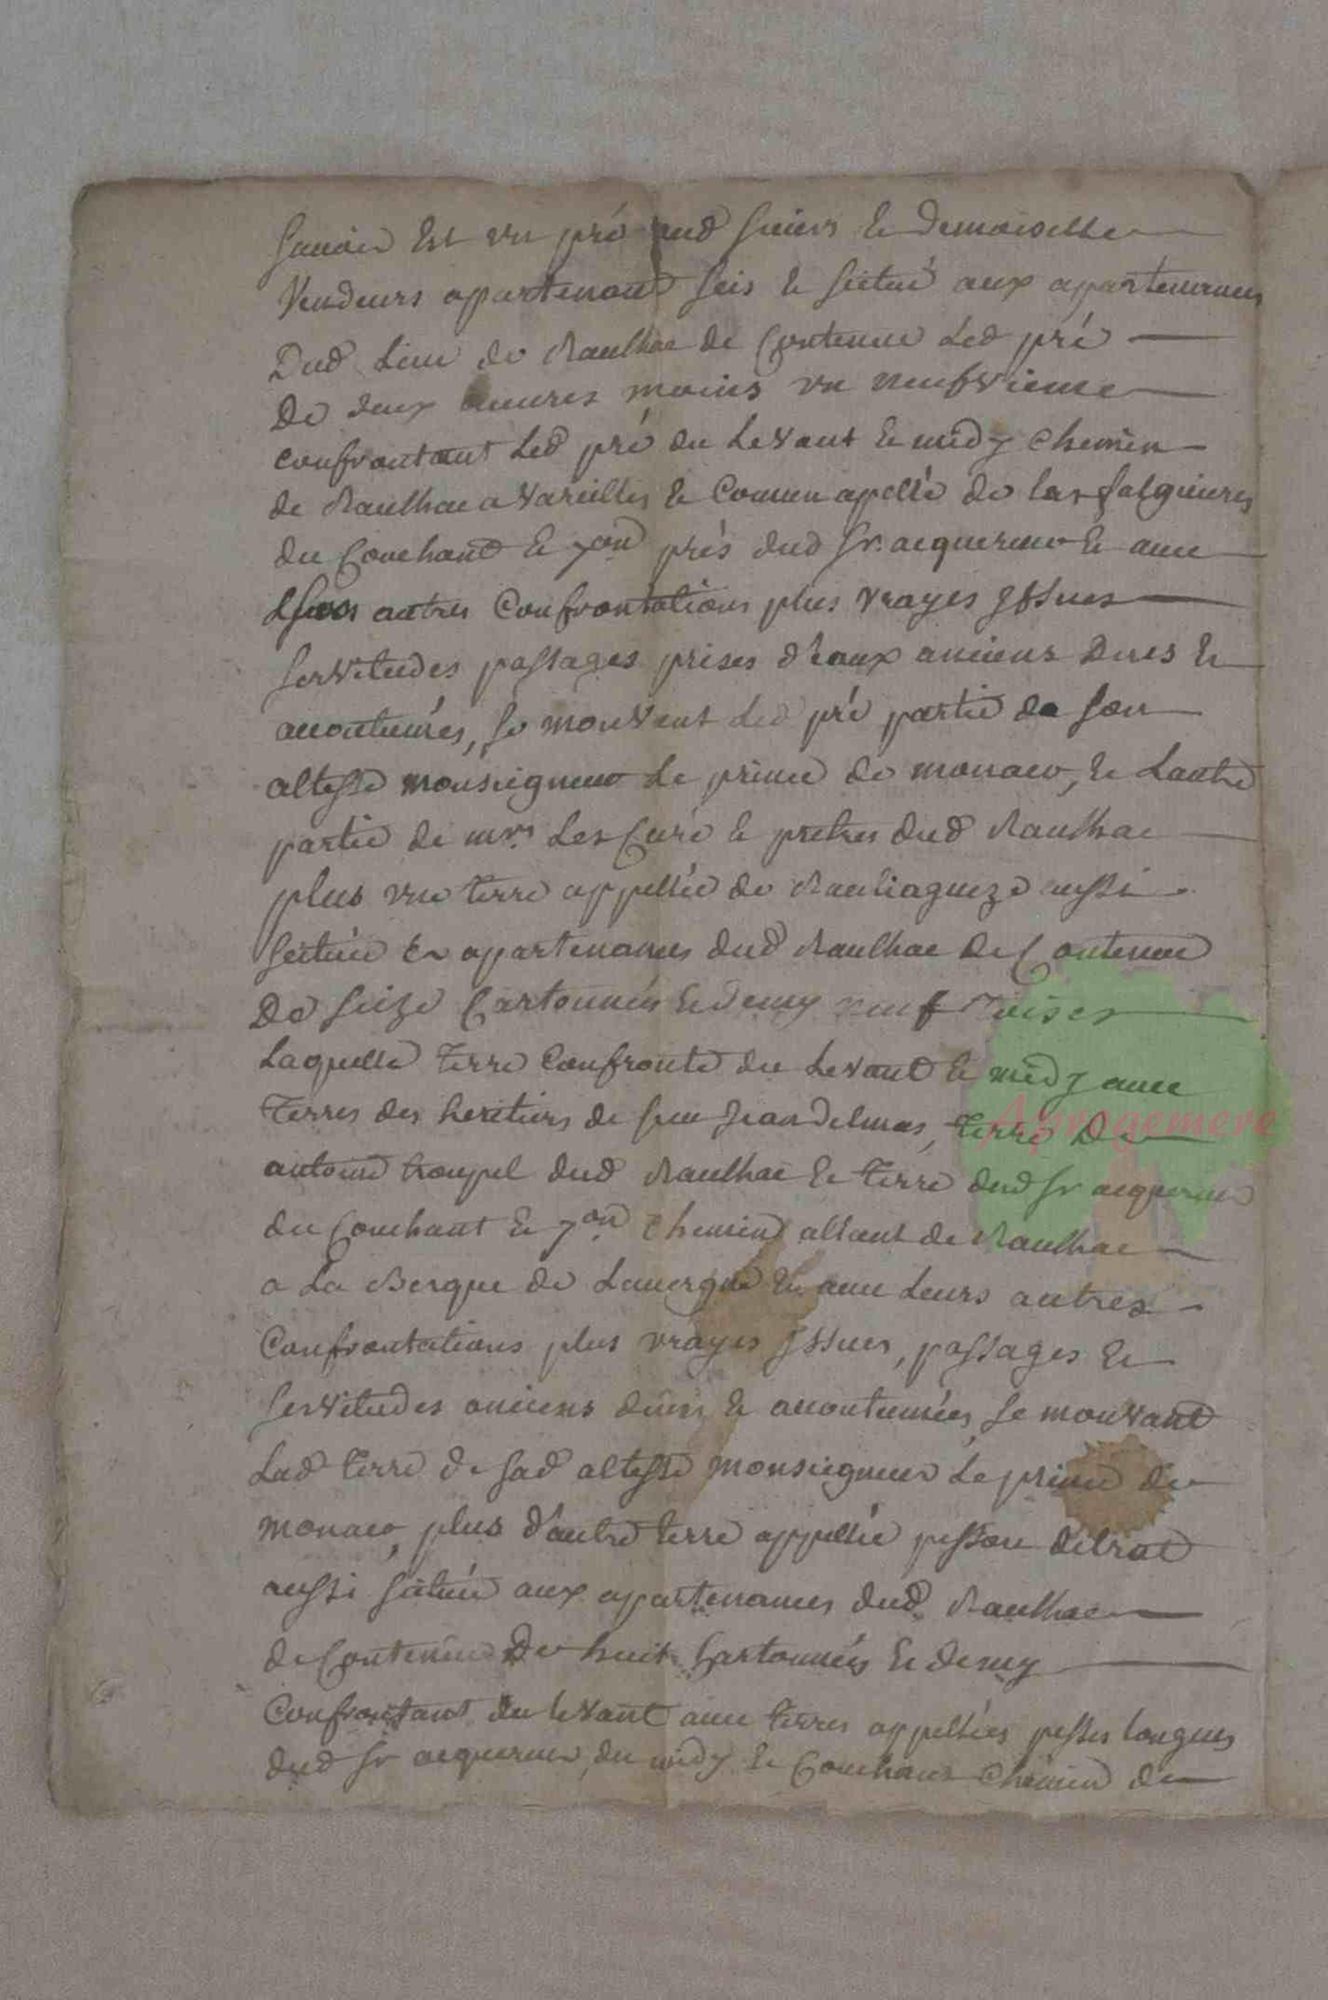 Sauoir Est vn pré aud sieurs & Demoiselle
Vendeurs apartenant seis & scitué aux apartenances
Dud Lieu de Raulhac de Contenue Led pré
De deux œuures moins vn neufvieme
confrontant Led pré du Levant & midy chemin
de Raulhac a Vareilles & Comun apellé de las falguieres
du Couchant & 7on prés dud Sr. acquereur & auec
autres Confrontations plus vrayes yssues
servitudes passages prises d'eaux anciens Dues &
acoutumés, se mouvent Led pré partie de son
altesse monseigneur Le prince de monaco, & Lautre
partie de mrs Les Curé & pretres dud Raulhac
plus vne terre appellée de Rauliagueze aussi
scituée Es apartenances dud Raulhac De Contenue
De seize Cartonnées & demy neuf Toises
Laquelle terre Confronte du Levant & midy auec
terres des heritiers de feu Jean Delmas, terre De
antoine troupel dud Raulhac & terre dud Sr acquereur
du Couchant & 7on chemin allant de Raulhac
a La Bergue de Lauergne & auec Leurs autres
Confrontations plus vrayes yssues, passages &
servitudes anciens dües & acoutumées, se mouvant
Lad terre de sad altesse monseigneur Le prince de
monaco, plus d'autre terre appellée pessou delrat
aussi scituée aux apartenances dud. Raulhac
de Contenüe De huit Cartonnées & demy
Confrontant du levant auec terres appellées pesses longues
dud Sr acquereur, du midy & Couchant chemin de
Auprogemere